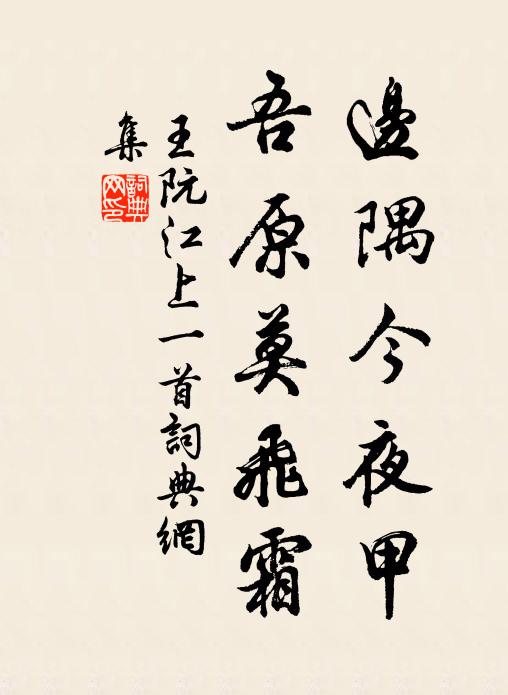 邊隅今夜甲
吾原莫飛霜
王阮江上一首詞典網
集
詞典網印